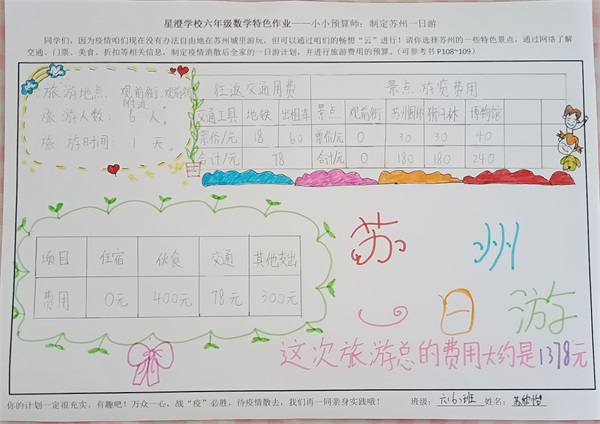 星澄学校六年级数学特色作业——小小预算师：制定苏州一日游
同学们，因为疫情咱们现在没有办法自由地在苏州城里游玩，但可以通过咱们的畅想“云”进行！请你选择苏州的一些特色景点，通过网络了解
交通、门票、美食、折扣等相关信息，制定疫情消散后全家的一日游计划，并进行旅游费用的预算。（可参考书 P108~109）
旅游地点：观前街、观前街附近
旅游人数：6人
旅游时间：1天
往返交通用费
交通工具 地铁 出租车
票价/元 18 60
合计/元 78
景点游览费用
景点 观前街 苏州园林 狮子林 博物馆
票价/元 0 30 30 40
合计/元 0 180 180 240
项目 住宿 伙食 交通 其他支出
费用 0元 400元 78元 300元
苏州
一日游
这次旅游总的费用大约是1378元
你的计划一定很充实、有趣吧！万众一心，战“疫”必胜，待疫情散去，我们再一同亲身实践哦！
班级：六(6)班 姓名：